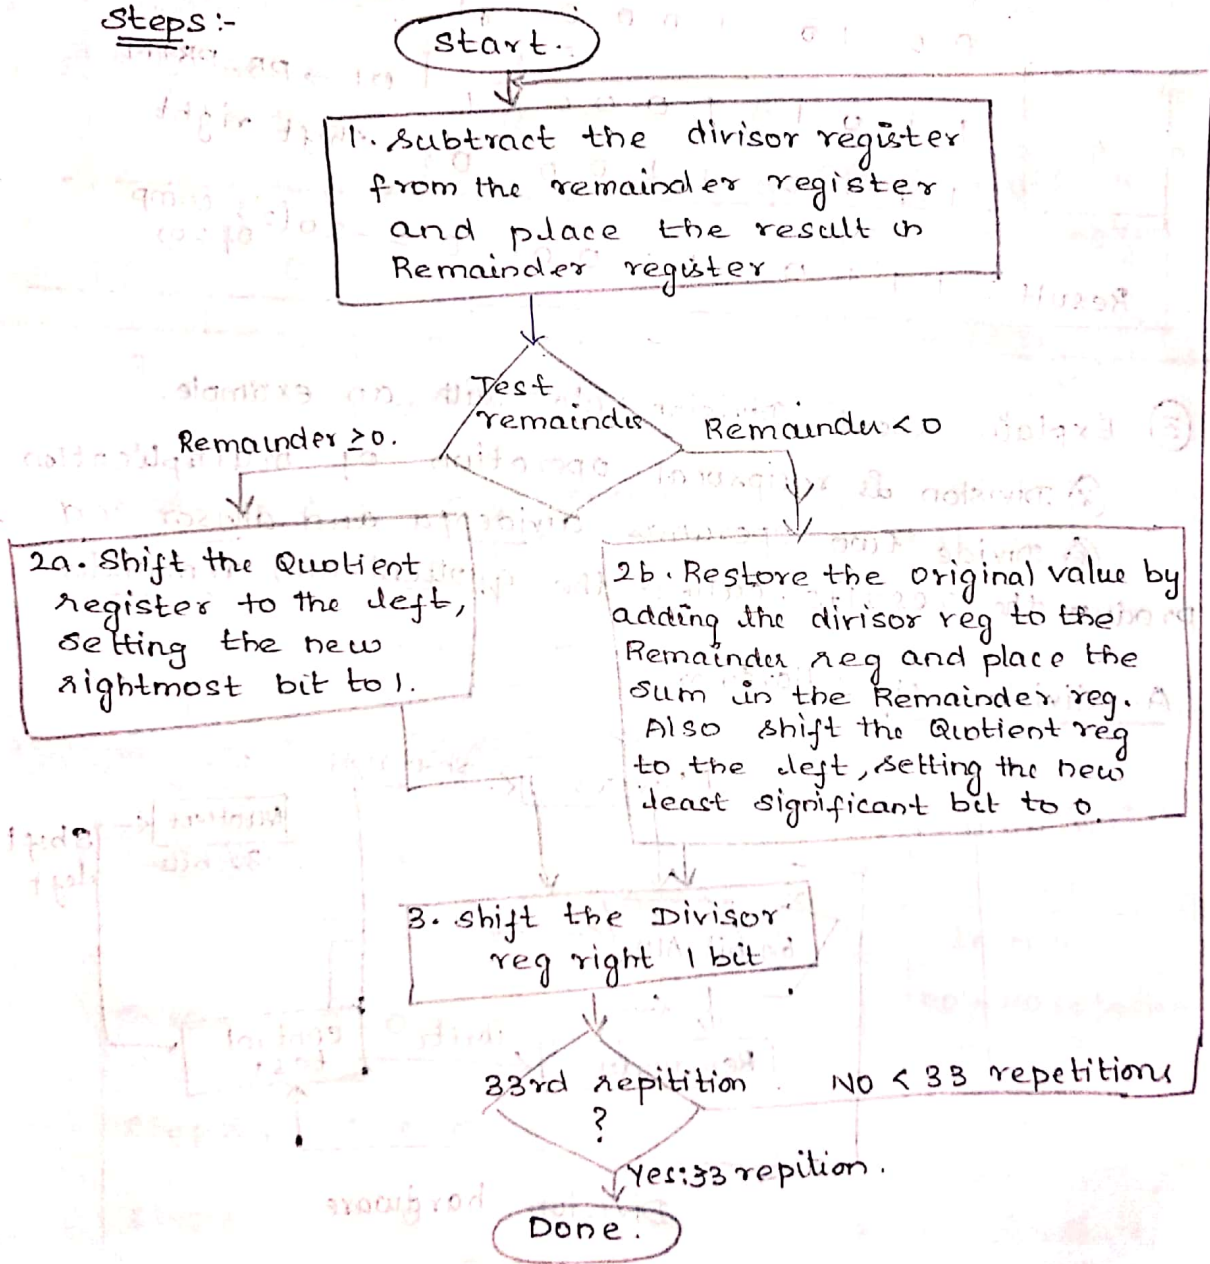 Steps :-
Start.
1. Subtract the divisor register
from the remainder register
and place the result in
Remainder register
Test
remainder
Remainder ≥0.
Remainder <0
2a. Shift the Quotient
register to the left,
setting the new
rightmost bit to 1.
2b. Restore the original value by
adding the divisor reg to the
Remainder reg and place the
sum in the Remainder reg.
Also shift the Quotient reg
to the left, setting the new
least significant bit to 0.
3. Shift the Divisor
reg right 1 bit
33rd repitition
?
NO < 33 repetitions
Yes:33 repition.
Done.